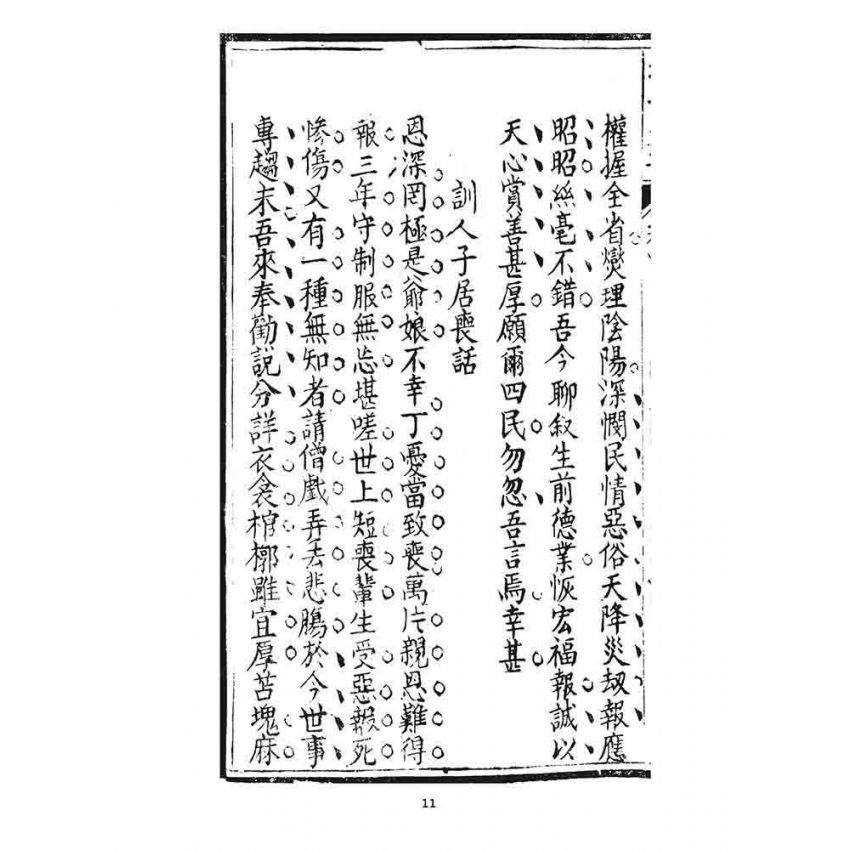 權握全省燮理陰陽深憫民情惡俗天降災刼報應
昭昭絲毫不錯吾今聊叙生前德業恢宏福報誠以
天心賞善甚厚願爾四民勿忽吾言焉幸甚
訓人子居喪話
恩深罔極是爺娘不幸丁憂當致喪萬片親恩難得
報三年守制服無忘堪嗟世上短喪輩生受惡報死
慘傷又有一種無知者請僧戲弄丟悲腸於今世事
專趨末吾來奉勸說分詳衣衾棺槨雖宜厚苫塊麻
11